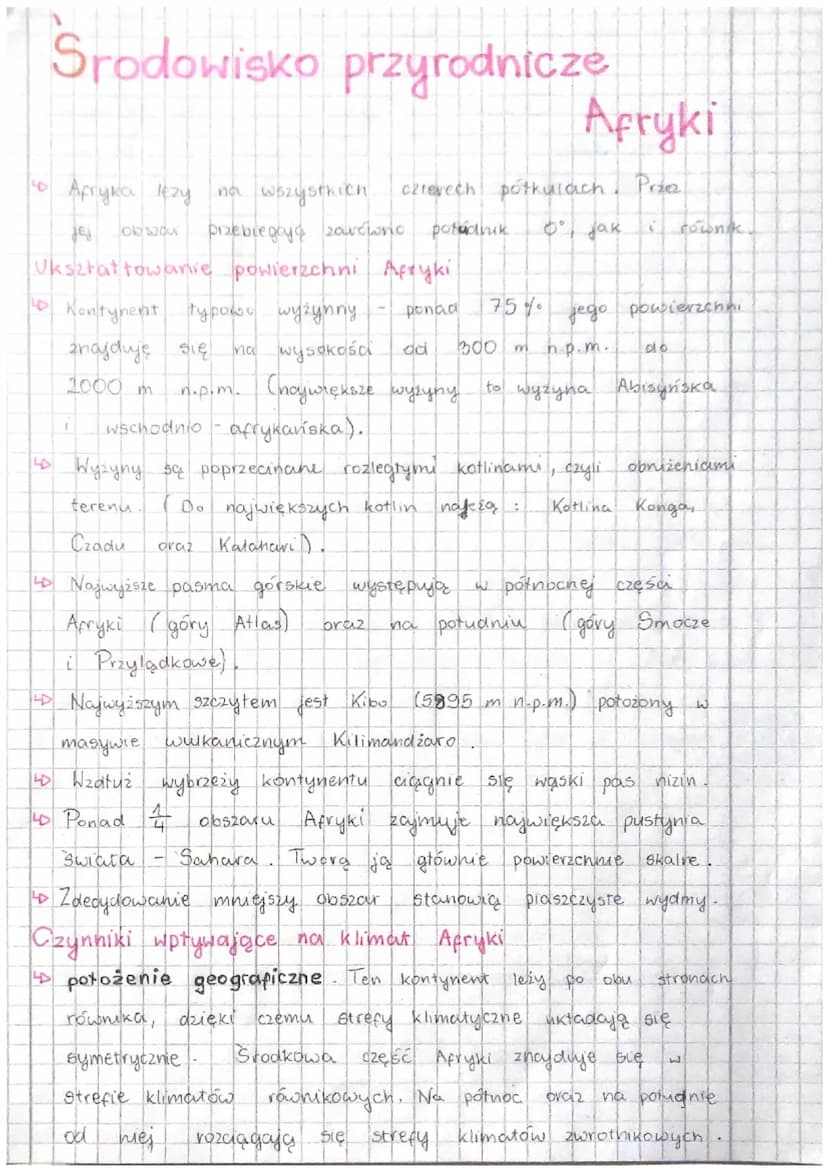 Środowisko przyrodnicze
Afryki
Afryka leży na wszystkich czterech półkulach. Przez
jej obszar przebiegają zarówno południk 0°, jak i równik.
Ukształtowanie powierzchni Afryki
Kontynent typowo wyżynny - ponad 75% jego powierzchni
znajduję się na wysokości od 300 m n.p.m. do
2000 m n.p.m. (największe wyżyny to wyżyna Abisyńska
i wschodnio - afrykańska).
Wyżyny są poprzecinane rozległymi kotlinami, czyli obniżeniami
terenu. (Do największych kotlin należą: Kotlina Konga,
Czadu oraz Kalahari).
Najwyższe pasma górskie występują w północnej części
Afryki (góry Atlas) oraz na południu (góry Smocze
i Przylądkowe).
Najwyższym szczytem jest Kibo (5895 m n.p.m.) położony w
masywie wulkanicznym Kilimandżaro.
Wzdłuż wybrzeży kontynentu ciągnie się wąski pas nizin.
Ponad 1/4 obszaru Afryki zajmuje największa pustynia
świata - Sahara. Tworą ją głównie powierzchnie skalne.
Zdecydowanie mniejszy obszar stanowią piaszczyste wydmy.
Czynniki wpływające na klimat Afryki
położenie geograficzne. Ten kontynent leży po obu stronach
równika, dzięki czemu strefy klimatyczne układają się
symetrycznie. Środkowa część Afryki znajduje się w
strefie klimatów równikowych. Na północ oraz na południe
od niej rozciągają się strefy klimatów zwrotnikowych.